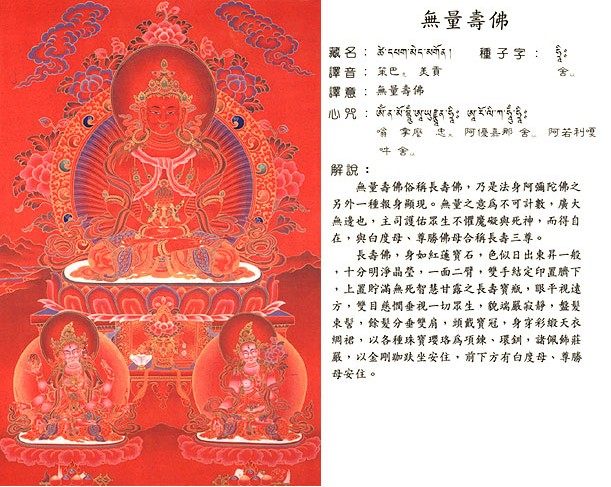 無量壽佛
藏名： ཚེ་དཔག་མེད་མགོན། 種子字： ཧྲཱིཿ
譯音：策巴 美貢 舍
譯意：無量壽佛
心咒：
嗡 拿麼 忠 阿優嘉那 舍 阿若利嘎
吽 舍
解說：
無量壽佛俗稱長壽佛，乃是法身阿彌陀佛之
另外一種報身顯現。無量之意為不可計數，廣大
無邊也，主司護佑眾生不懼魔礙與死神，而得自
在，與白度母、尊勝佛母合稱長壽三尊。
長壽佛，身如紅蓮寶石，色似日出東昇一般
，十分明淨晶瑩，一面二臂，雙手結定印置臍下
，上置貯滿無死智慧甘露之長壽寶瓶，眼平視遠
方，雙目慈憫垂視一切眾生，貌端嚴寂靜，盤髮
束髻，餘髮分垂雙肩，頭戴寶冠，身穿彩緞天衣
綢裙，以各種珠寶瓔珞為項鍊、環釧，諸佩飾莊
嚴，以金剛跏趺坐安住，前下方有白度母、尊勝
母安住。